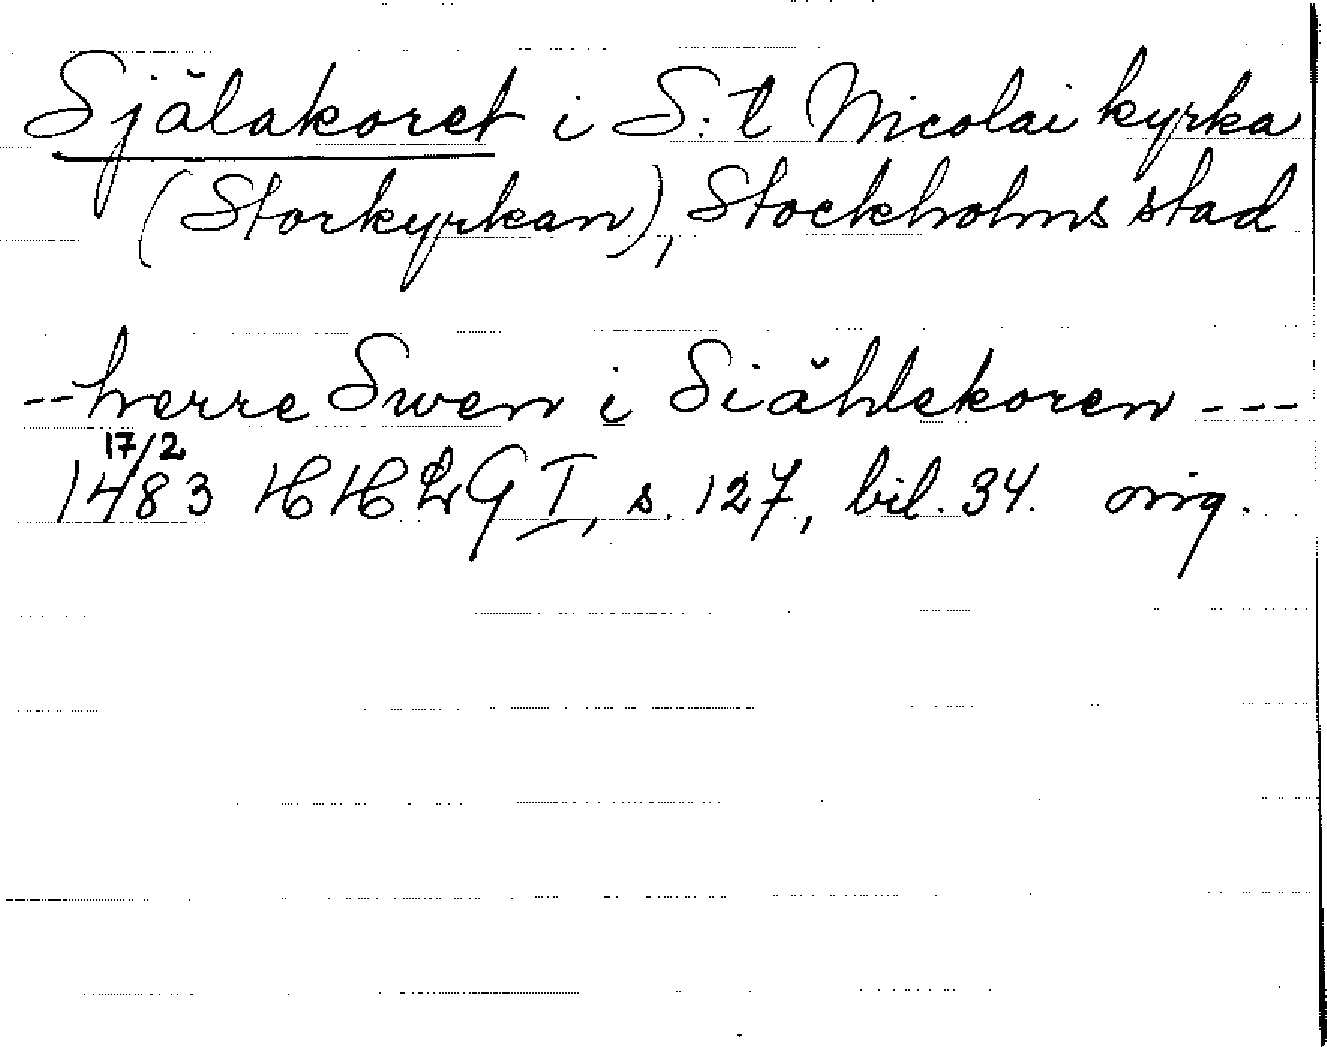 Själakoret i S:t Nicolai kyrka
(Storkyrkan), Stockholms stad
--herre Swen i Siählekoren ---
17/2
1483 HHLG I, s. 127, bil. 34. orig.